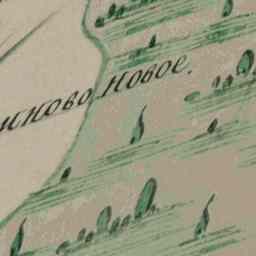 ниново новое.